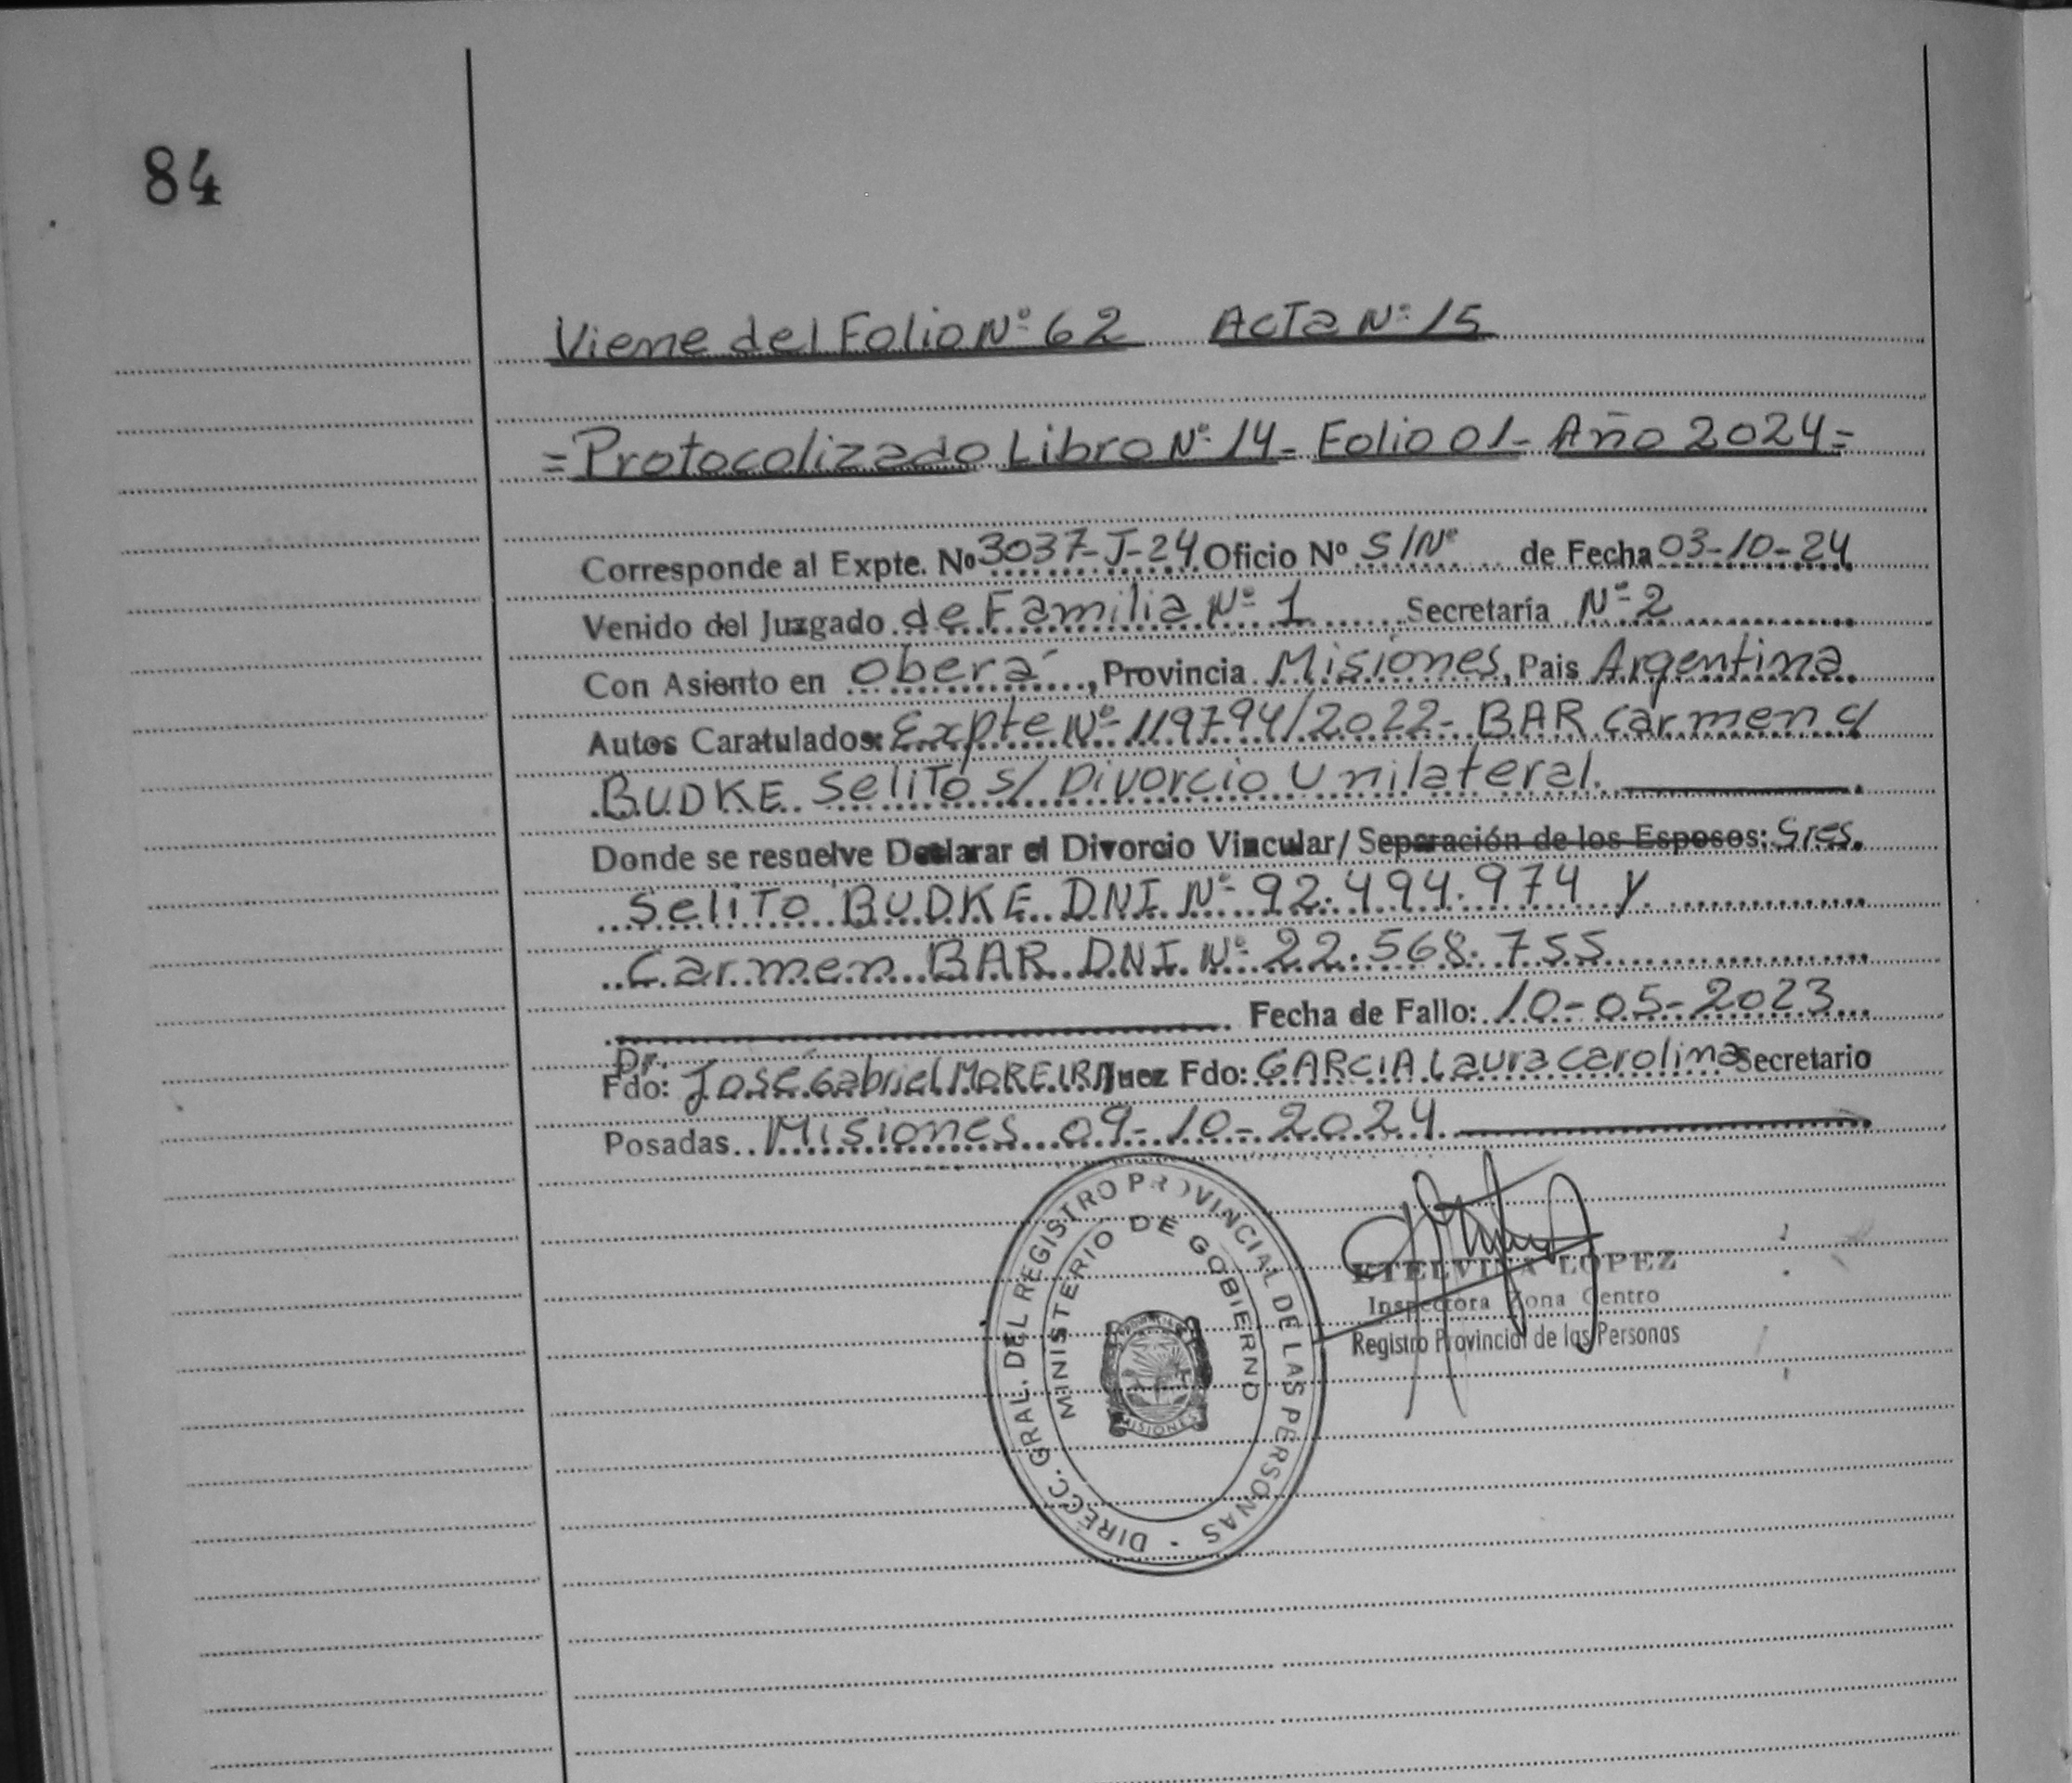 84
Viene del Folio Nº 62 Acta Nº 15
=Protocolizado Libro Nº 14- Folio 01- Año 2024=
Corresponde al Expte. Nº 3037-J-24 Oficio Nº S/Nº de Fecha 03-10-24
Venido del Juzgado de Familia Nº 1 Secretaría Nº 2
Con Asiento en Oberá, Provincia Misiones, Pais Argentina.
Autos Caratulados: Expte Nº 119794/2022- BAR Carmen c/
BUDKE Selito s/ Divorcio Unilateral.
Donde se resuelve Declarar el Divorcio Vincular/ Separación de los Esposos: Sres.
Selito BUDKE DNI Nº 92.494.974 y
Carmen BAR DNI Nº 22.568.755
Fecha de Fallo: 10-05-2023
Dr.
Fdo: José Gabriel MOREIRA Juez Fdo: GARCIA Laura Carolina Secretario
Posadas Misiones 09-10-2024
DIRECC. GRAL. DEL REGISTRO PROVINCIAL DE LAS PERSONAS -
MINISTERIO DE GOBIERNO
MISIONES
ETELVINA LOPEZ
Inspectora Zona Centro
Registro Provincial de las Personas